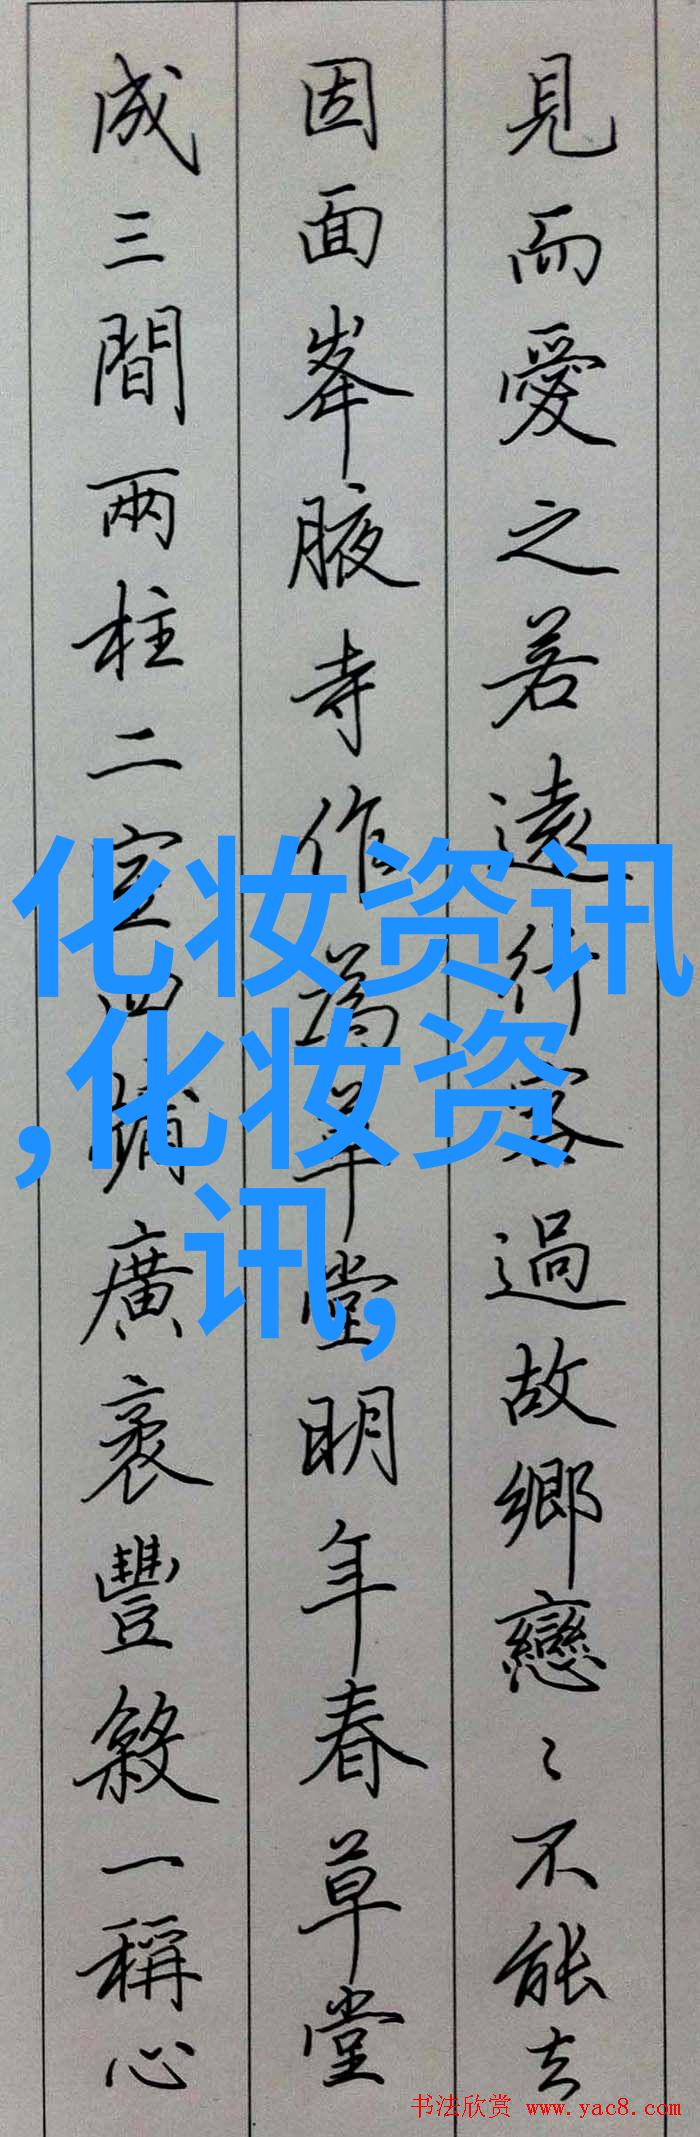 見而愛之若遠行客過故鄉戀〻不能去
因面峯腋寺作為草堂明年春草堂
成三間兩柱二室四牖廣袤豐殺一稱心
化妆资讯
,化妆资
讯,
书法欣赏 www.yac8.com